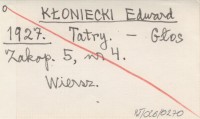 o
KŁONIECKI Edward
1927. Tatry. - Głos
Zakop. 5, nr 4.
Wiersz.